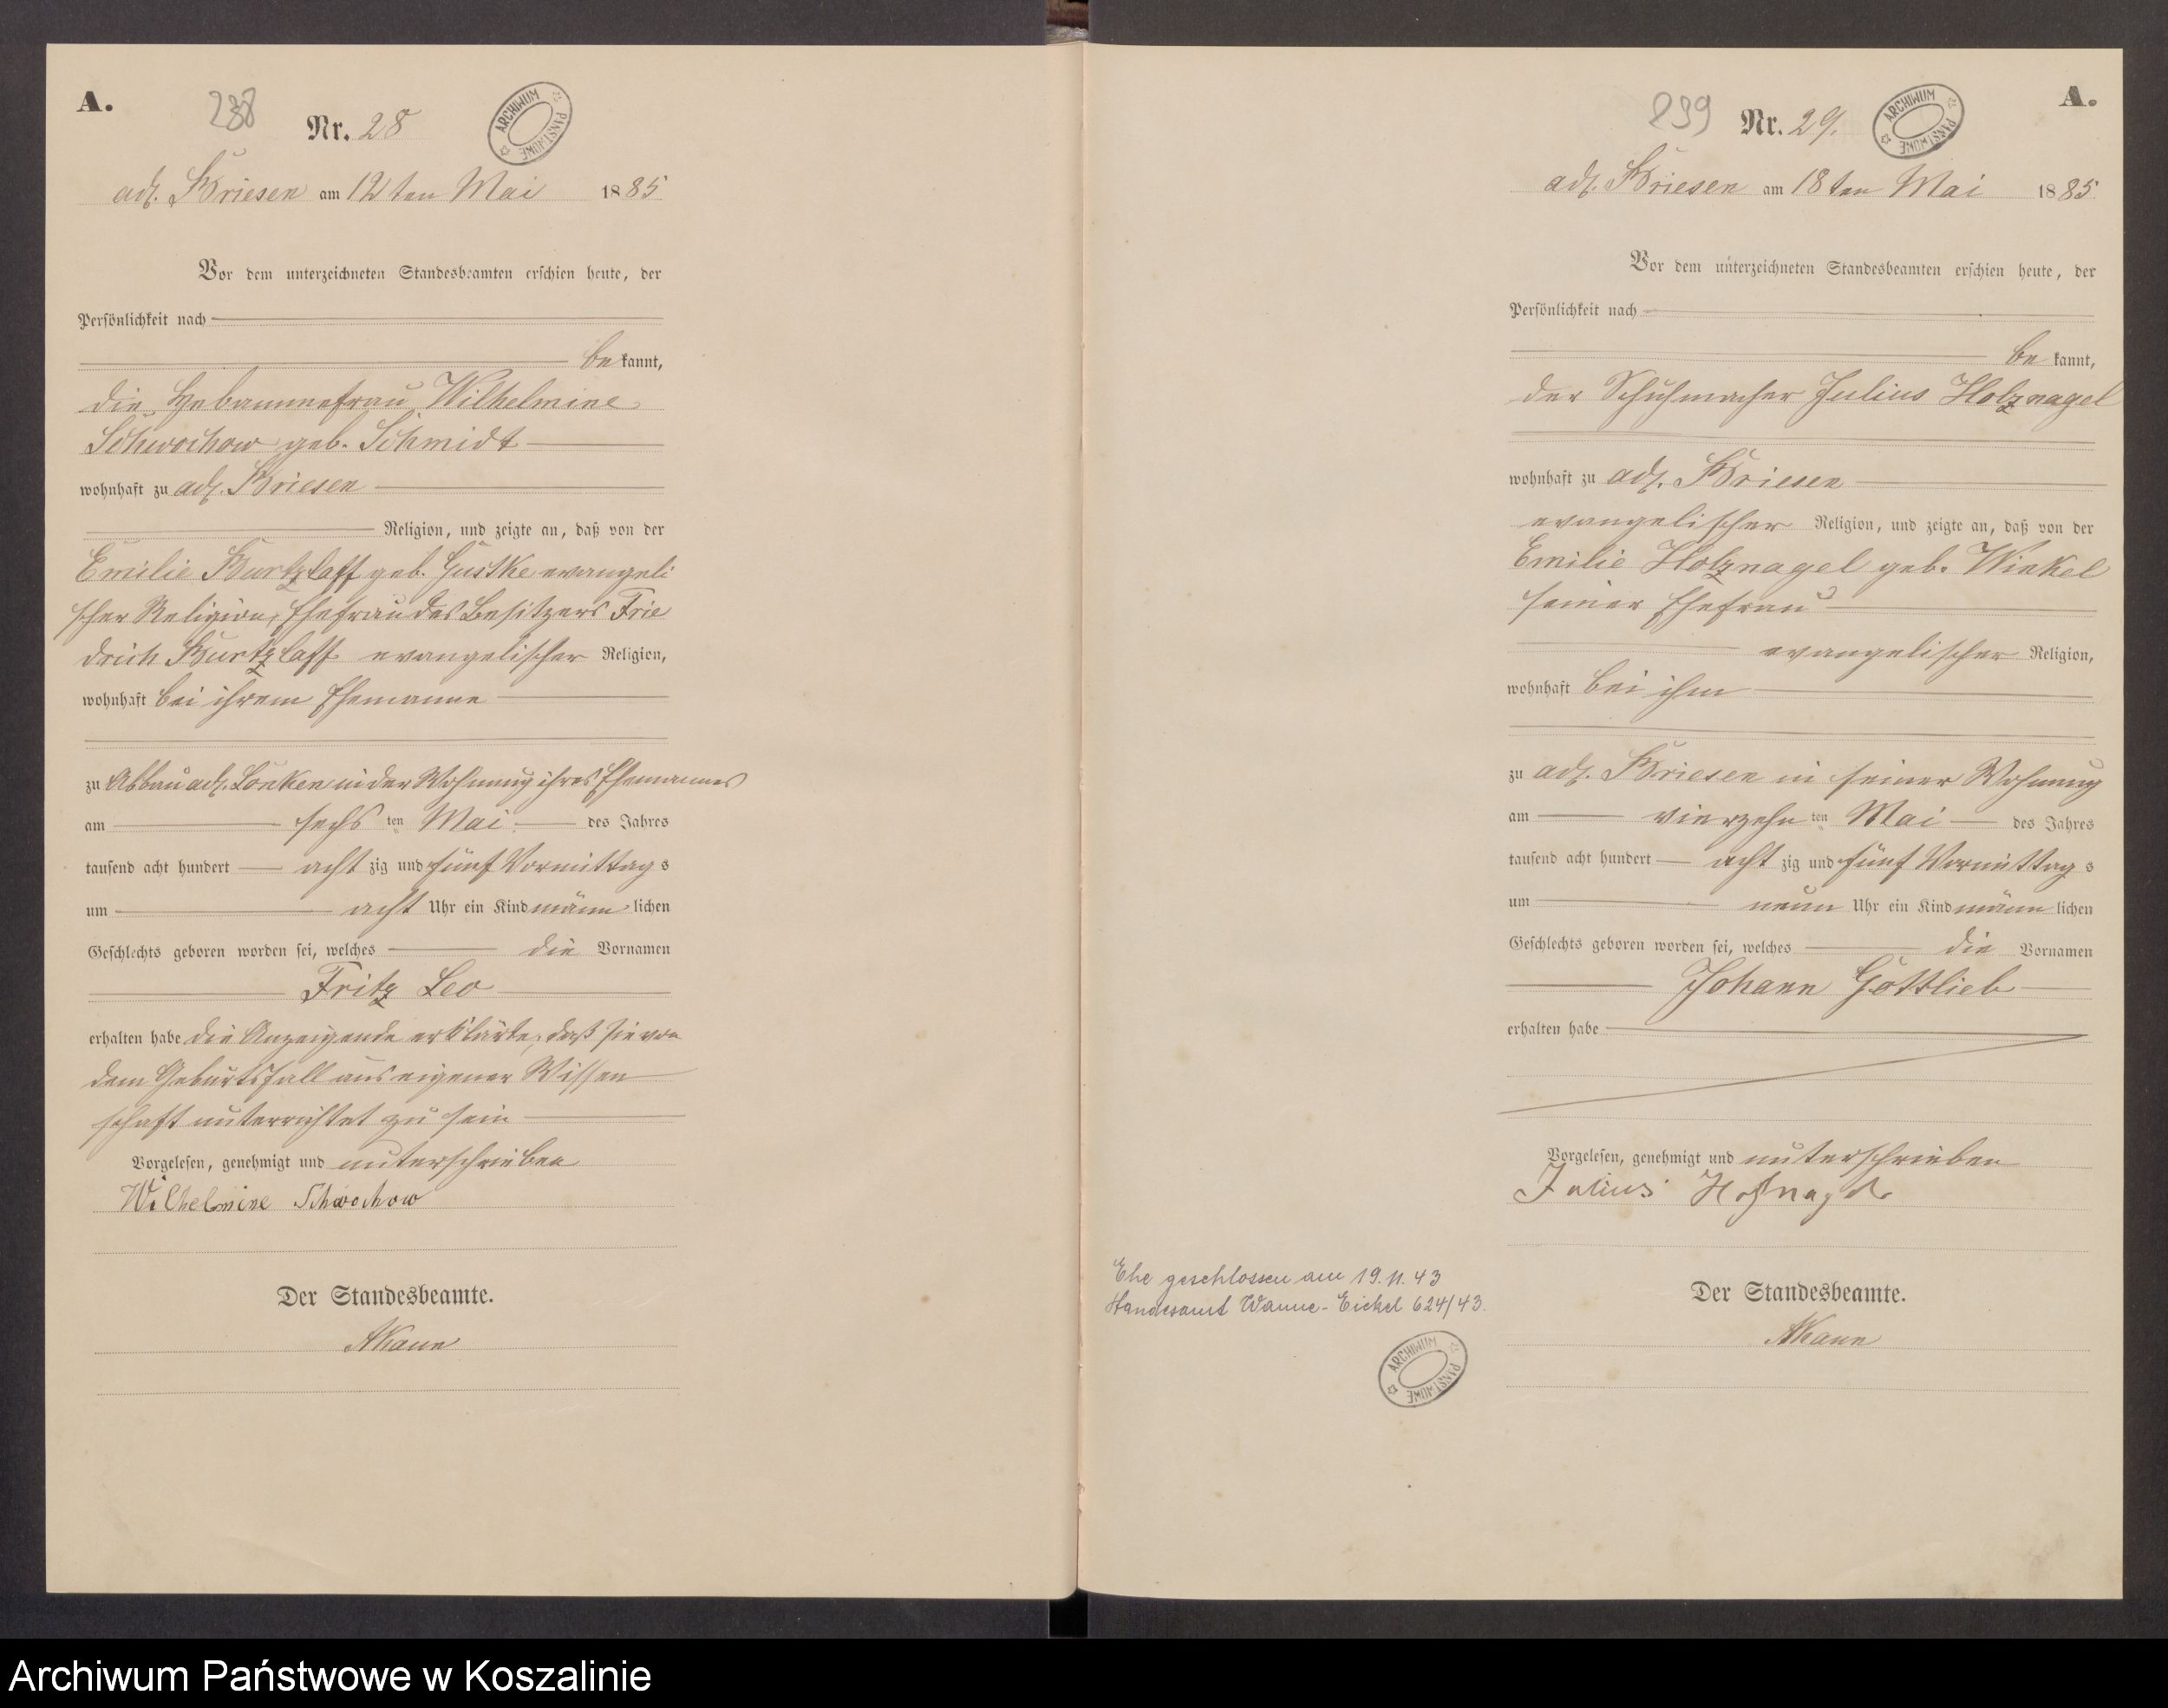 A.
238
Nr. 28
ARCHIWUM PAŃSTWOWE
adl. Briesen am 12ten Mai 1885
Vor dem unterzeichneten Standesbeamten erschien heute, der
Persönlichkeit nach
be kannt,
die Hebammefrau Wilhelmine
Schwochow geb. Schmidt
wohnhaft zu adl. Briesen
Religion, und zeigte an, daß von der
Emilie Kurtzlaff geb. Gustke evangeli
scher Religion, Ehefrau des Besitzers Frie
drich Kurtzlaff evangelischer Religion,
wohnhaft bei ihrem Ehemanne
zu Abbau adl. Lonken in der Wohnung ihres Ehemannes
am sechs ten Mai des Jahres
tausend acht hundert acht zig und fünf Vormittag s
um acht Uhr ein Kind männ lichen
Geschlechts geboren worden sei, welches die Vornamen
Fritz Leo
erhalten habe die Anzeigende erklärte, daß sie von
dem Geburtsfall aus eigener Wissen
schaft unterrichtet zu sein
Vorgelesen, genehmigt und unterschrieben
Wilhelmine Schwochow
Der Standesbeamte.
A.
239
Nr. 29.
ARCHIWUM PAŃSTWOWE
adl. Briesen am 18ten Mai 1885
Vor dem unterzeichneten Standesbeamten erschien heute, der
Persönlichkeit nach
be kannt,
der Schuhmacher Julius Holznagel
wohnhaft zu adl. Briesen
evangelischer Religion, und zeigte an, daß von der
Emilie Holznagel geb. Winkel
seiner Ehefrau
evangelischer Religion,
wohnhaft bei ihm
zu adl. Briesen in seiner Wohnung
am vierzehn ten Mai des Jahres
tausend acht hundert acht zig und fünf Vormittag s
um neun Uhr ein Kind männ lichen
Geschlechts geboren worden sei, welches die Vornamen
Johann Gottlieb
erhalten habe
Vorgelesen, genehmigt und unterschrieben
Julius Holznagel
Ehe geschlossen am 19.11.43
Standesamt Wanne-Eickel 624/43.
ARCHIWUM PAŃSTWOWE
Der Standesbeamte.
Archiwum Państwowe w Koszalinie